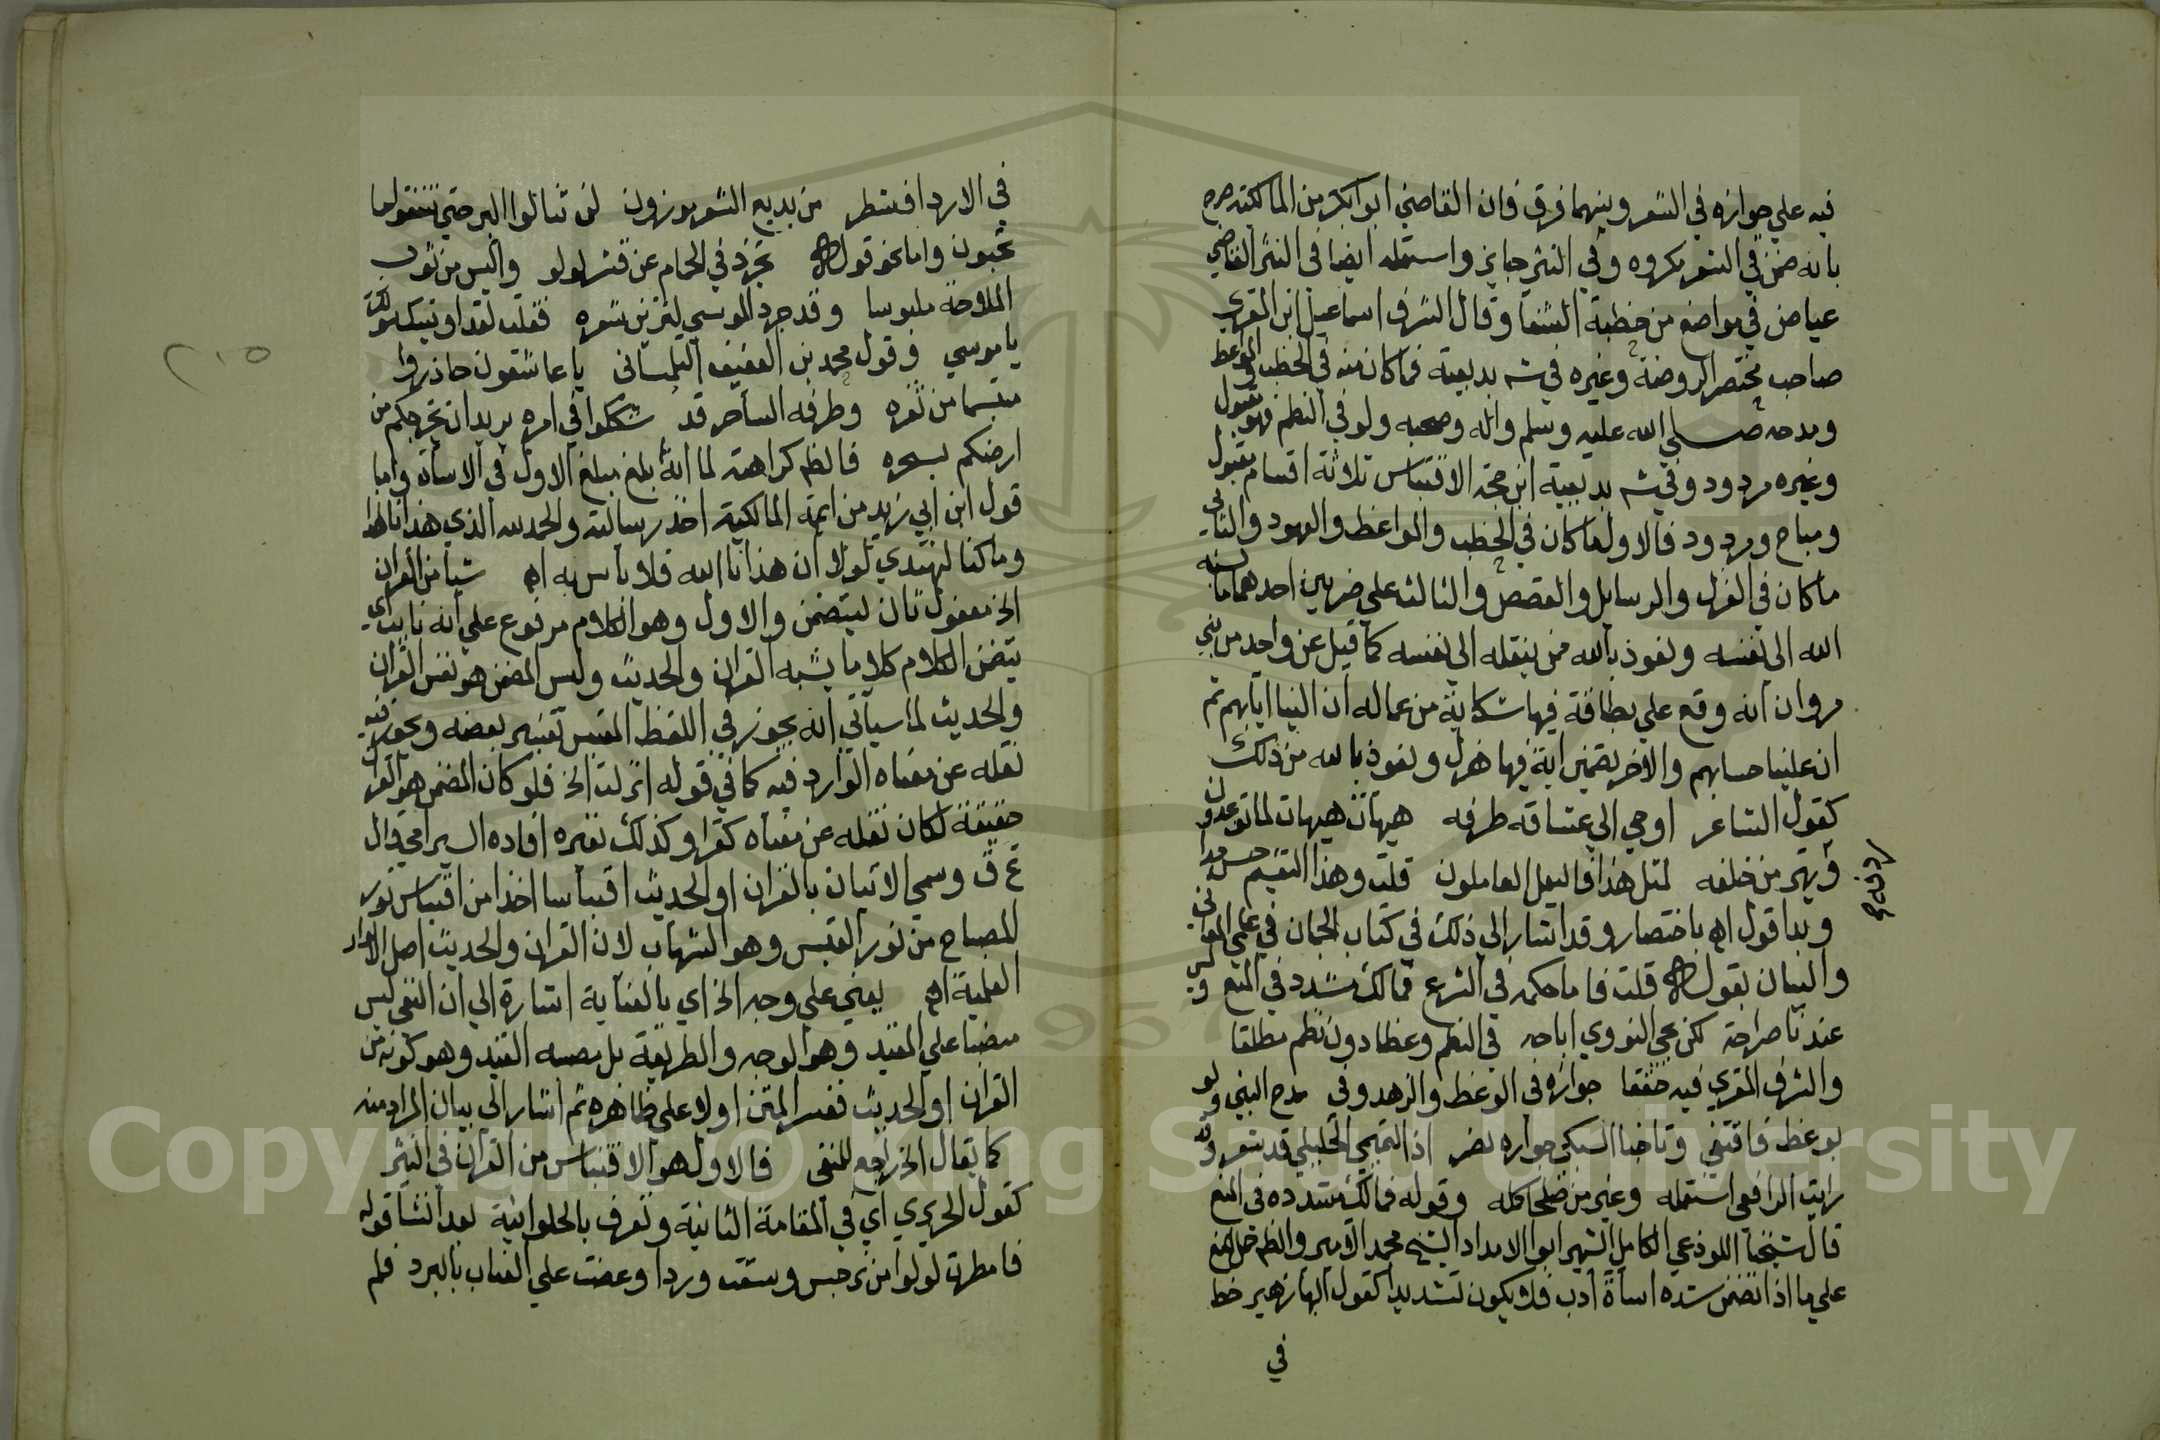 فيه علي جوازه في الشعر وبينهما فرق فان القاضي ابوابكر من المالكية صرح
بانه ضمن في الشعر مكروه وفي النثر جايز واستعمله ايضا في النثر القاضي
عياض في مواضع من خطبة الشفا وقال الشرف اسماعيل ابن المقري
صاحب مختصر الروضة وغيره في شـ بديعيته فما كان منه في الخطب والمواعظ
ومدحه صلي الله عليه وسلم واله وصحبه ولو في النظم فهو مقبول
وغيره مردود وفي شـ بديعية ابن حجة الاقتباس ثلاثة اقسام مقبول
ومباح ومردود فالاول ما كان في الخطب والمواعظ والعهود والثاني
ما كان في الغزل والرسايل والقصص والثالث علي ضربين احدهما ما نسبه
الله الي نفسه ونعوذ بالله ممن ينقله الي نفسه كما قيل عن واحد من بني
مروان انه وقع علي بطاقة فيها شكاية من عماله ان الينا ايابهم ثم
ان علينا حسابهم والاخر تضمين اية فيها هزل ونعوذ بالله من ذلك
كقول الشاعر اوحي الي عشاقه طرفه هيهات هيهات لما توعدون
وردفه
ويهتز من خلفه لمثل هذا فاليعمل العاملون قلت وهذا التقسيم حسن جدا
وبه اقول اه باختصار وقد اشار الي ذلك في كتاب الجمان في علمي المعاني
والبيان بقوله قلت فاما حكمه في الشرع فمالك مشدد في المنع وليس
عندنا صراحة لكن يحيي النووي اباحه في النظم وعظا دون نظم مطلقا
والشرف المقري فيه حققا جوازه في الوعظ والزهد وفي مدح النبي ولو
بوعظ فاقتفي وتاجنا السبكي جوازه نصر اذ التميمي الجليلي قد شعر وقد
رايت الرافعي استعمله وغيره من صلحا كمله وقوله فمالك مشدده في المنع
قال شيخنا اللوذعي الكامل الشهير ابوا الامداد الشيخ محمد الامير والظم حمل المنع
علي ما اذا تضمن شده اساة ادب فلا يكون تشديدا كقول البها زهير خط
في
٢١٥
في الارداف سطر من بديع الشعر موزون لن تنالوا البر حتي تنفقوا مما
تحبون واما نحو قوله تجرد في الحمام عن قشر لولو والبس من ثوب
الملاحة ملبوسا وقد جرد الموسي لتزيين شعره فقلت لقد اوتيت سولك
يا موسي وقول محمد بن العفيف التلمساني يا عاشقون حاذروا
مبتسما من ثغره وطرفه الساحر قد شككوا في امره يريد ان يخرجكم من
ارضكم بسحره فالظم كراهته لما انه بلغ مبلغ الاول في الاساة واما
قول ابن ابي زيد من ايمة المالكية اخذ رسالته والحمد لله الذي هدانا لهذا
وما كنا لنهتدي لولا ان هدانا الله فلا باس به اه شيا من القران
الخ مفعول ثان ليتضمن والاول وهو الكلام مرفوع علي انه نايب اي
يتضمن الكلام كلاما يشبه القران والحديث وليس المضمن هو نفس القران
والحديث لما سياتي انه يجوز في اللفظ المقتبس تغيير بعضه ويجوز فيه
نقله عن معناه الوارد فيه كما في قوله انزلت الخ فلو كان المضمن هو القران
حقيقة لكان نقله عن معناه كفرا وكذلك تغيره افاده السيرامي قال
ع ق وسمي الاتيان بالقران او الحديث اقتباسا اخذا من اقتباس نور
المصباح من نور القبس وهو الشهاب لان القران والحديث اصل الانوار
العلمية اه يعني علي وجه الخ اي بالعناية اشارة الي ان النفي ليس
منصبا علي المقيد وهو الوجه والطريقة بل مصبه القيد وهو كونه من
القران او الحديث ففسر المتن اولا علي ظاهره ثم اشار الي بيان المراد منه
كما يقال الخ راجع للمنفي فالاول هو الاقتباس من القران في النثر
كقول الحريري اي في المقامة الثانية وتعرف بالحلوانية بعد انشا قوله
فامطرت لولوا من نرجس وسقت وردا وعضت علي العناب بالبرد فلم